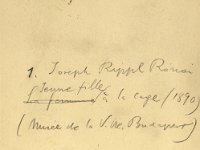 1. Joseph Rippl Ronai
Jeune fille
La femme à la cage (1890)
(Musée de la V. de Budapest)